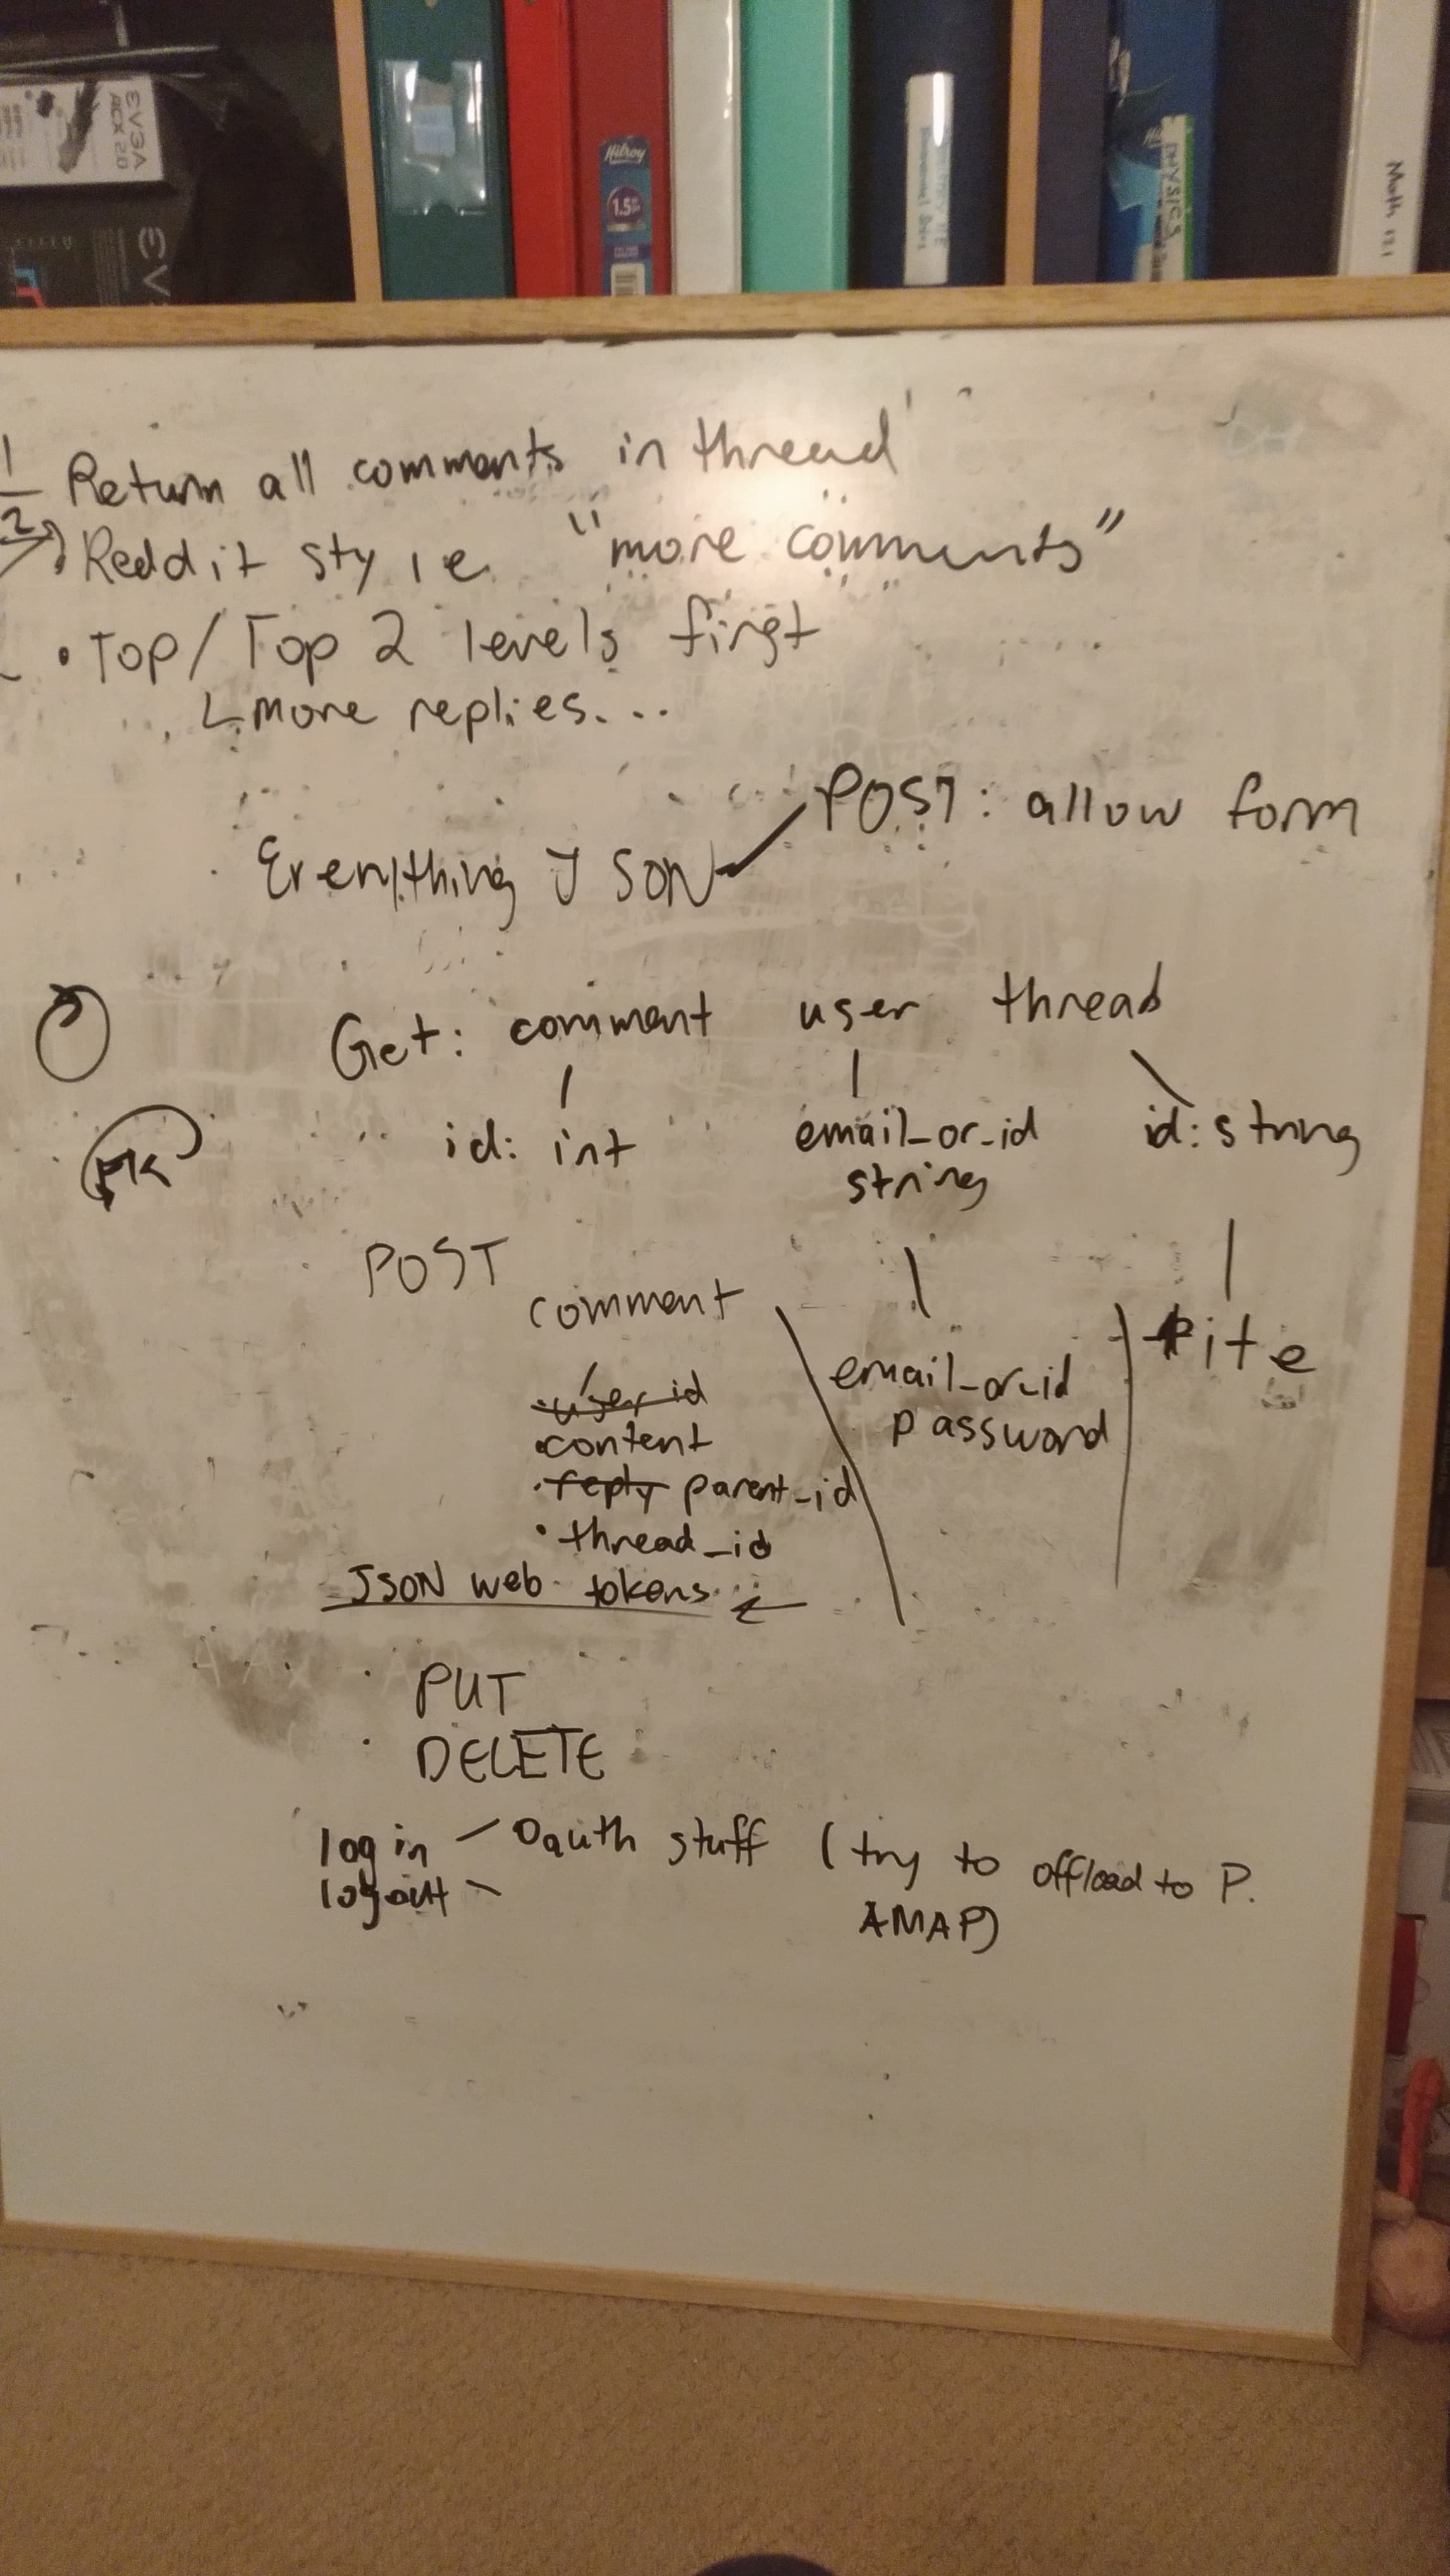 EVGA
ACX 2.0
Hilroy
1.5"
PHYSICS
Math 121
1
Return all comments in thread
2
Reddit style "more comments"
• Top/Top 2 levels first
more replies...
POST: allow form
Everything JSON
Get: comment user thread
id: int email_or_id id: string
string
POST
comment
• user id
• content
• reply parent_id
• thread_id
email_or_id
password
JSON web tokens
• PUT
• DELETE
login - Oauth stuff (try to offload to P.
logout - AMAP)